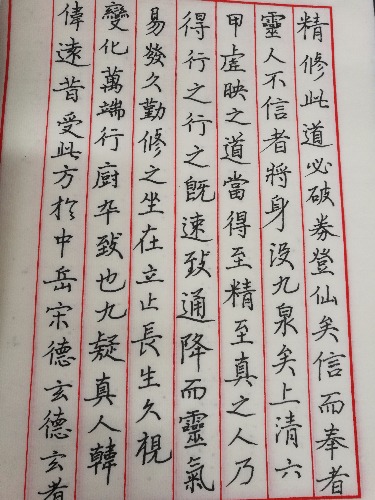 精修此道必破券登仙矣信而奉者
靈人不信者將身没九泉矣上清六
甲虛映之道當得至精至真之人乃
得行之行之既速致通降而靈氣
易發久勤修之坐在立止長生久視
變化萬端行廚卒致也九疑真人韓
偉遠昔受此方於中岳宋德玄德玄者